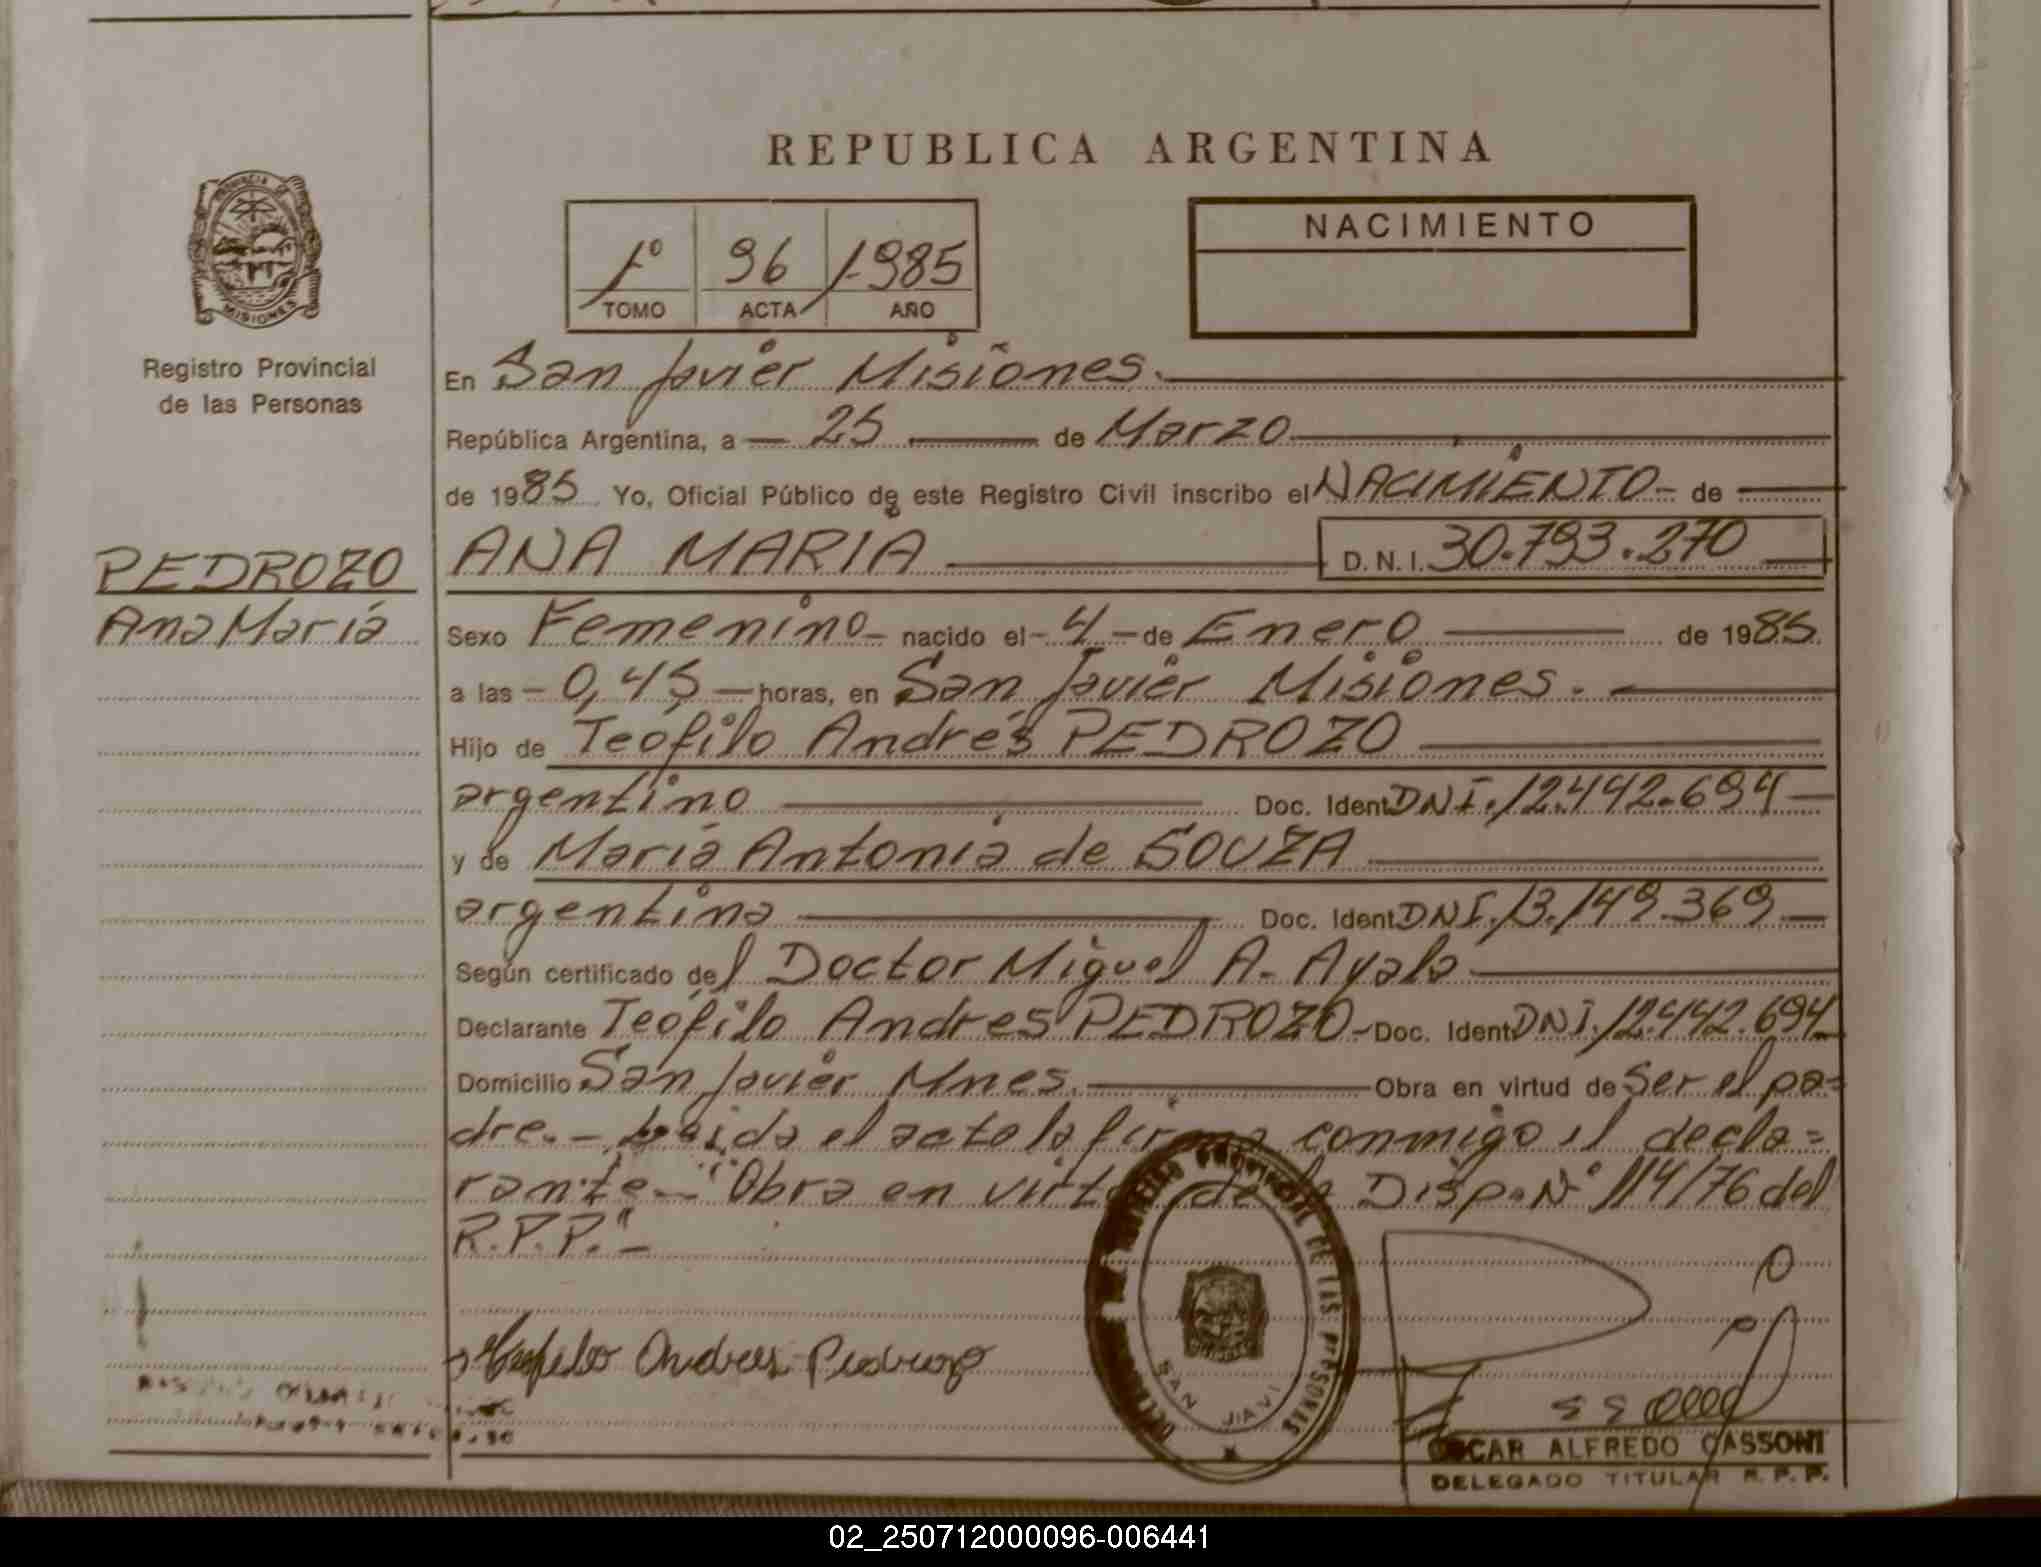 REPUBLICA ARGENTINA
PROVINCIA DE
MISIONES
Registro Provincial
de las Personas
1º 96 1985
TOMO ACTA AÑO
NACIMIENTO
En San Javier Misiones.
República Argentina, a 25 de Marzo
de 1985 Yo, Oficial Público de este Registro Civil inscribo el NACIMIENTO de
PEDROZO
Ana María
ANA MARIA D.N.I. 30.793.270
Sexo Femenino nacido el 4 de Enero de 1985
a las 0,45 horas, en San Javier Misiones.
Hijo de Teófilo Andrés PEDROZO
argentino Doc. Ident. DNI. 12.442.694
y de María Antonia de SOUZA
argentina Doc. Ident. DNI. 13.149.369
Según certificado del Doctor Miguel A. Ayala
Declarante Teófilo Andres PEDROZO Doc. Ident. DNI. 12.442.694
Domicilio San Javier Mnes. Obra en virtud de Ser el pa=
dre.- Leída el acta la firma conmigo el decla=
rante.- "Obra en virtud de la Disp. Nº 114/76 del
R.P.P."-
Teofilo Andres Pedrozo
PROVINCIAL DE LAS PERSONAS
SAN JAVI
OSCAR ALFREDO CASSONI
DELEGADO TITULAR R.P.P.
02_250712000096-006441